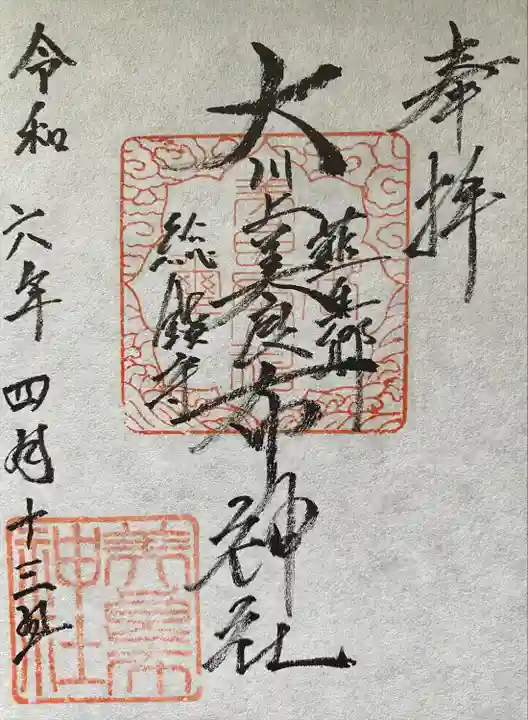 奉拝
韮生郷
大川上美良布神社
総鎮守
令和六年四月十三日
美良布
神社